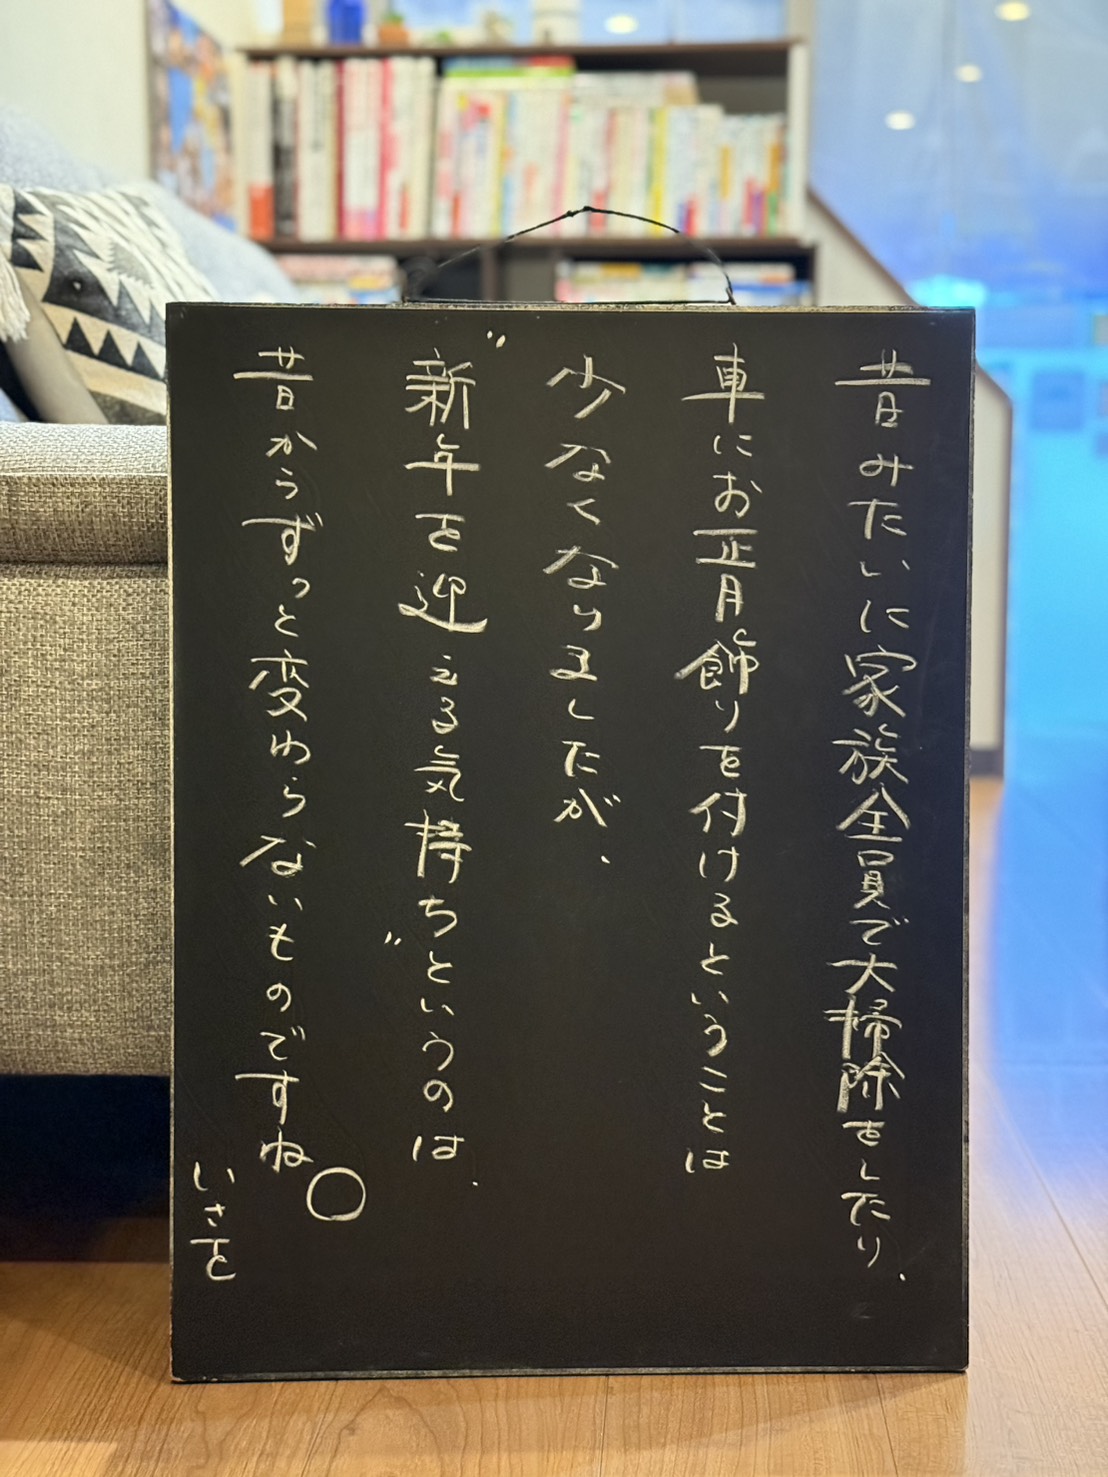 昔みたいに家族全員で大掃除をしたり、
車にお正月飾りを付けるということは
少なくなりましたが、
"新年を迎える気持ち"というのは、
昔からずっと変わらないものですね○
いさを